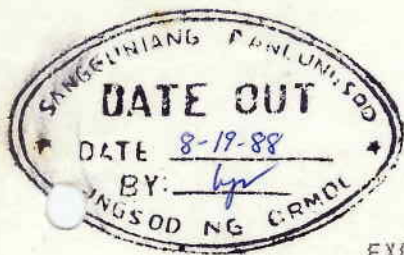 SANGGUNIANG PANLUNGSOD
DATE OUT
DATE 8-19-88
BY:
NGSOD NG ORMOC